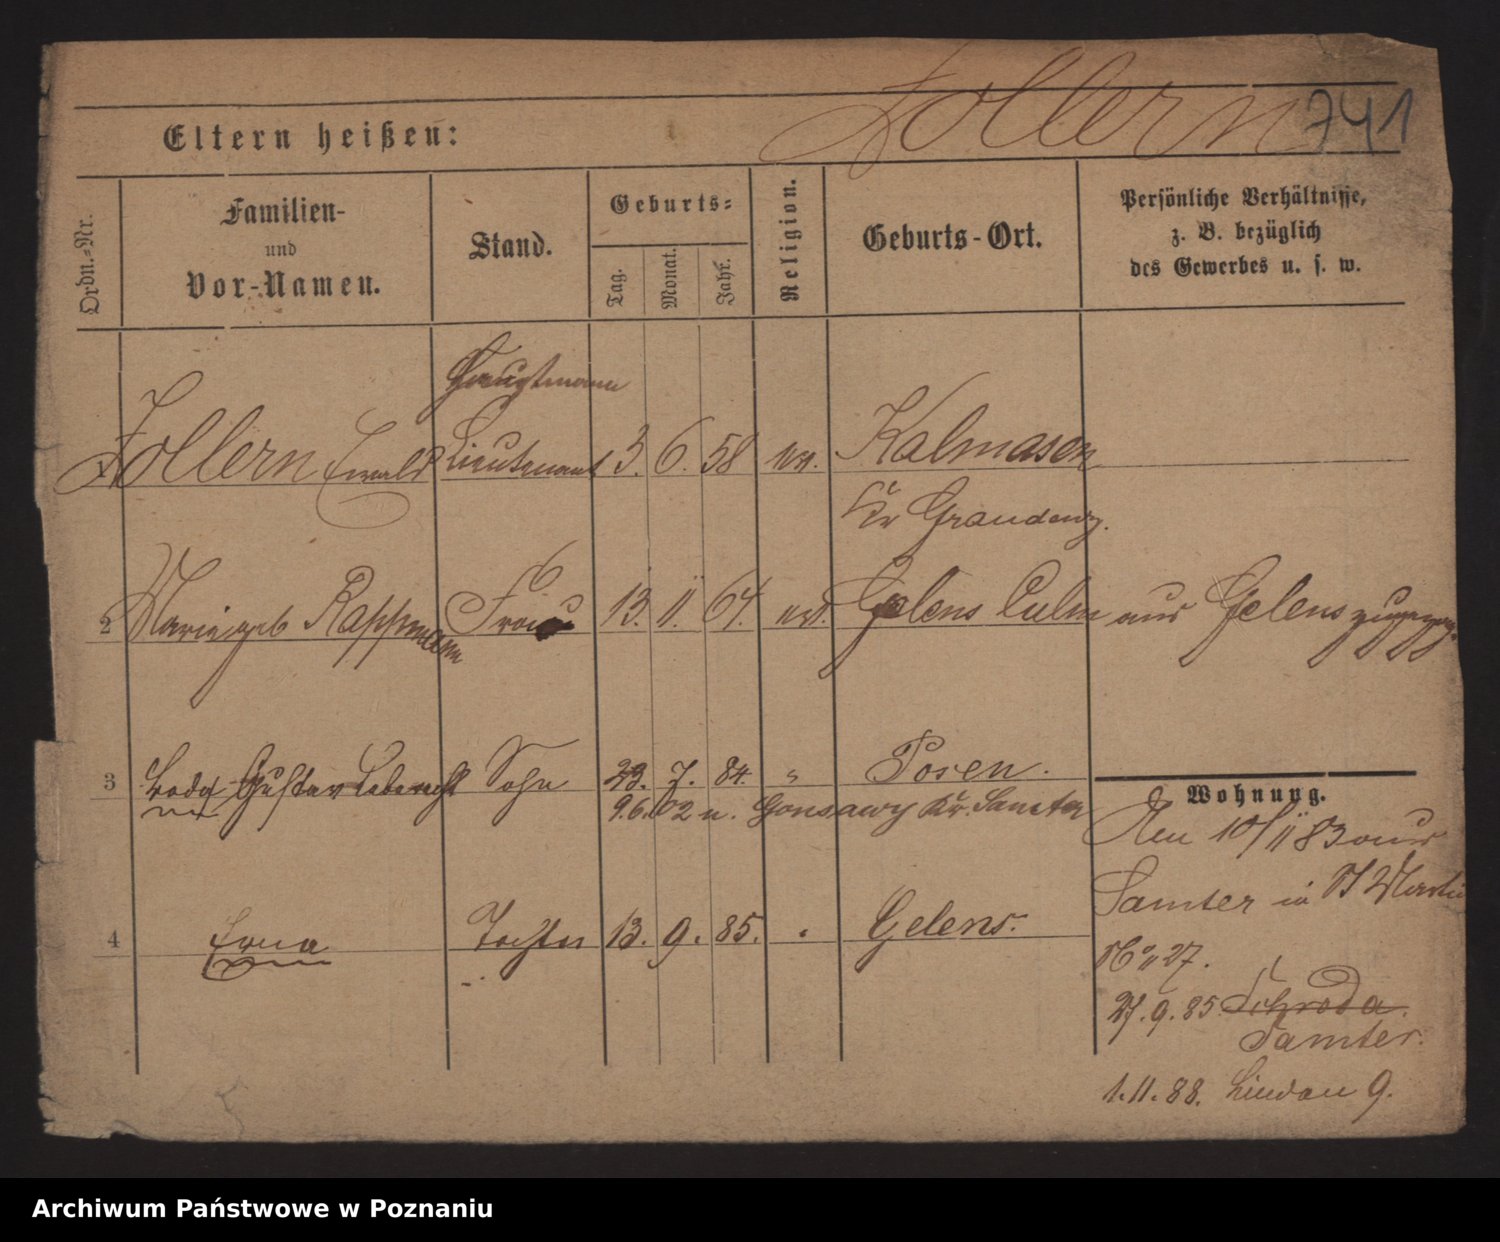 Zollern 741
Eltern heißen:
Ordn.-Nr.
Familien-
und
Vor-Namen.
Stand.
Geburts-
Tag.
Monat.
Jahr.
Religion.
Geburts-Ort.
Persönliche Verhältnisse,
z. B. bezüglich
des Gewerbes u. s. w.
Hauptmann
1 Zollern Ewald Lieutenant 3. 6. 58 Kalmasen
Kr Graudenz.
2 Marie geb Rappmann Frau 13. 11. 64. Gelens Culm aus Gelens
3 Gustav Leberecht Sohn 23. 7. 84. " Posen.
9.6.02 n. Gonsawy Kr. Samter
Wohnung.
Den 10/11 83 aus
Samter in St Martin
No 27.
4 Erna Tochter 13. 9. 85. Gelens.
27. 9. 85. Schroda.
Samter.
1. 11. 88. Lindau 9.
Archiwum Państwowe w Poznaniu